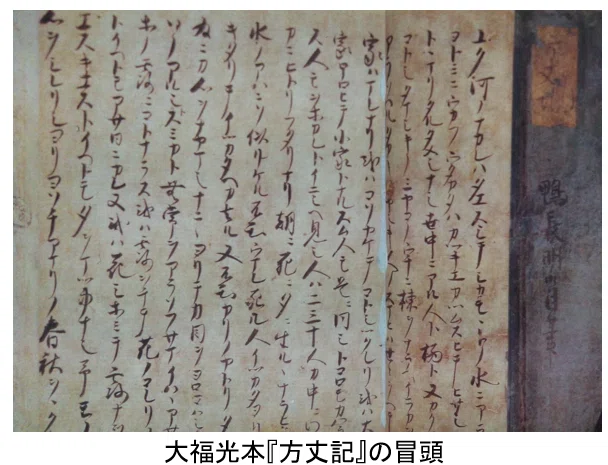 方丈記
鴨長明自筆
ユク河ノナカレハタエスシテシカモヽトノ水ニアラ
ヨトミニウカフウタカタハカツキエカツムスヒテヒサシ
トヽマリタルタメシナシ世中ニアル人ト栖ト又カク
コトシタマシキノミヤコノウチニ棟ヲナラヘイラカ
家ハマレナリ或ハコソヤケテコトシツクレリ或ハ大
家ホロヒテ小家トナルスム人モ是ニ同シトコロモカハ
ス人モヲホカレトイニシヘ見シ人ハ二三十人カ中ニワ
カニヒトリフタリナリ朝ニ死ニ夕ニ生ルヽナラヒ
水ノアハニソ似リケル不知ウマレ死ル人イツカタヨリ
キタリテイツカタヘカ去ル又不知カリノヤトリタ
為ニカ心ヲナヤマシナニヽヨリテカ目ヲヨロコハ
ソノアルシトスミカト無常ヲアラソフサマイハヽアサ
ホノ露ニコトナラス或ハ露ヲチテ花ノコレリ
トイヘトモアサ日ニカレヌ或ハ花シホミテ露ナヲ
エスキエストイヘトモタヲマツ事ナシ予モノ
心ヲシレリシヨリヨソチアマリノ春秋ヲヽク
大福光本『方丈記』の冒頭